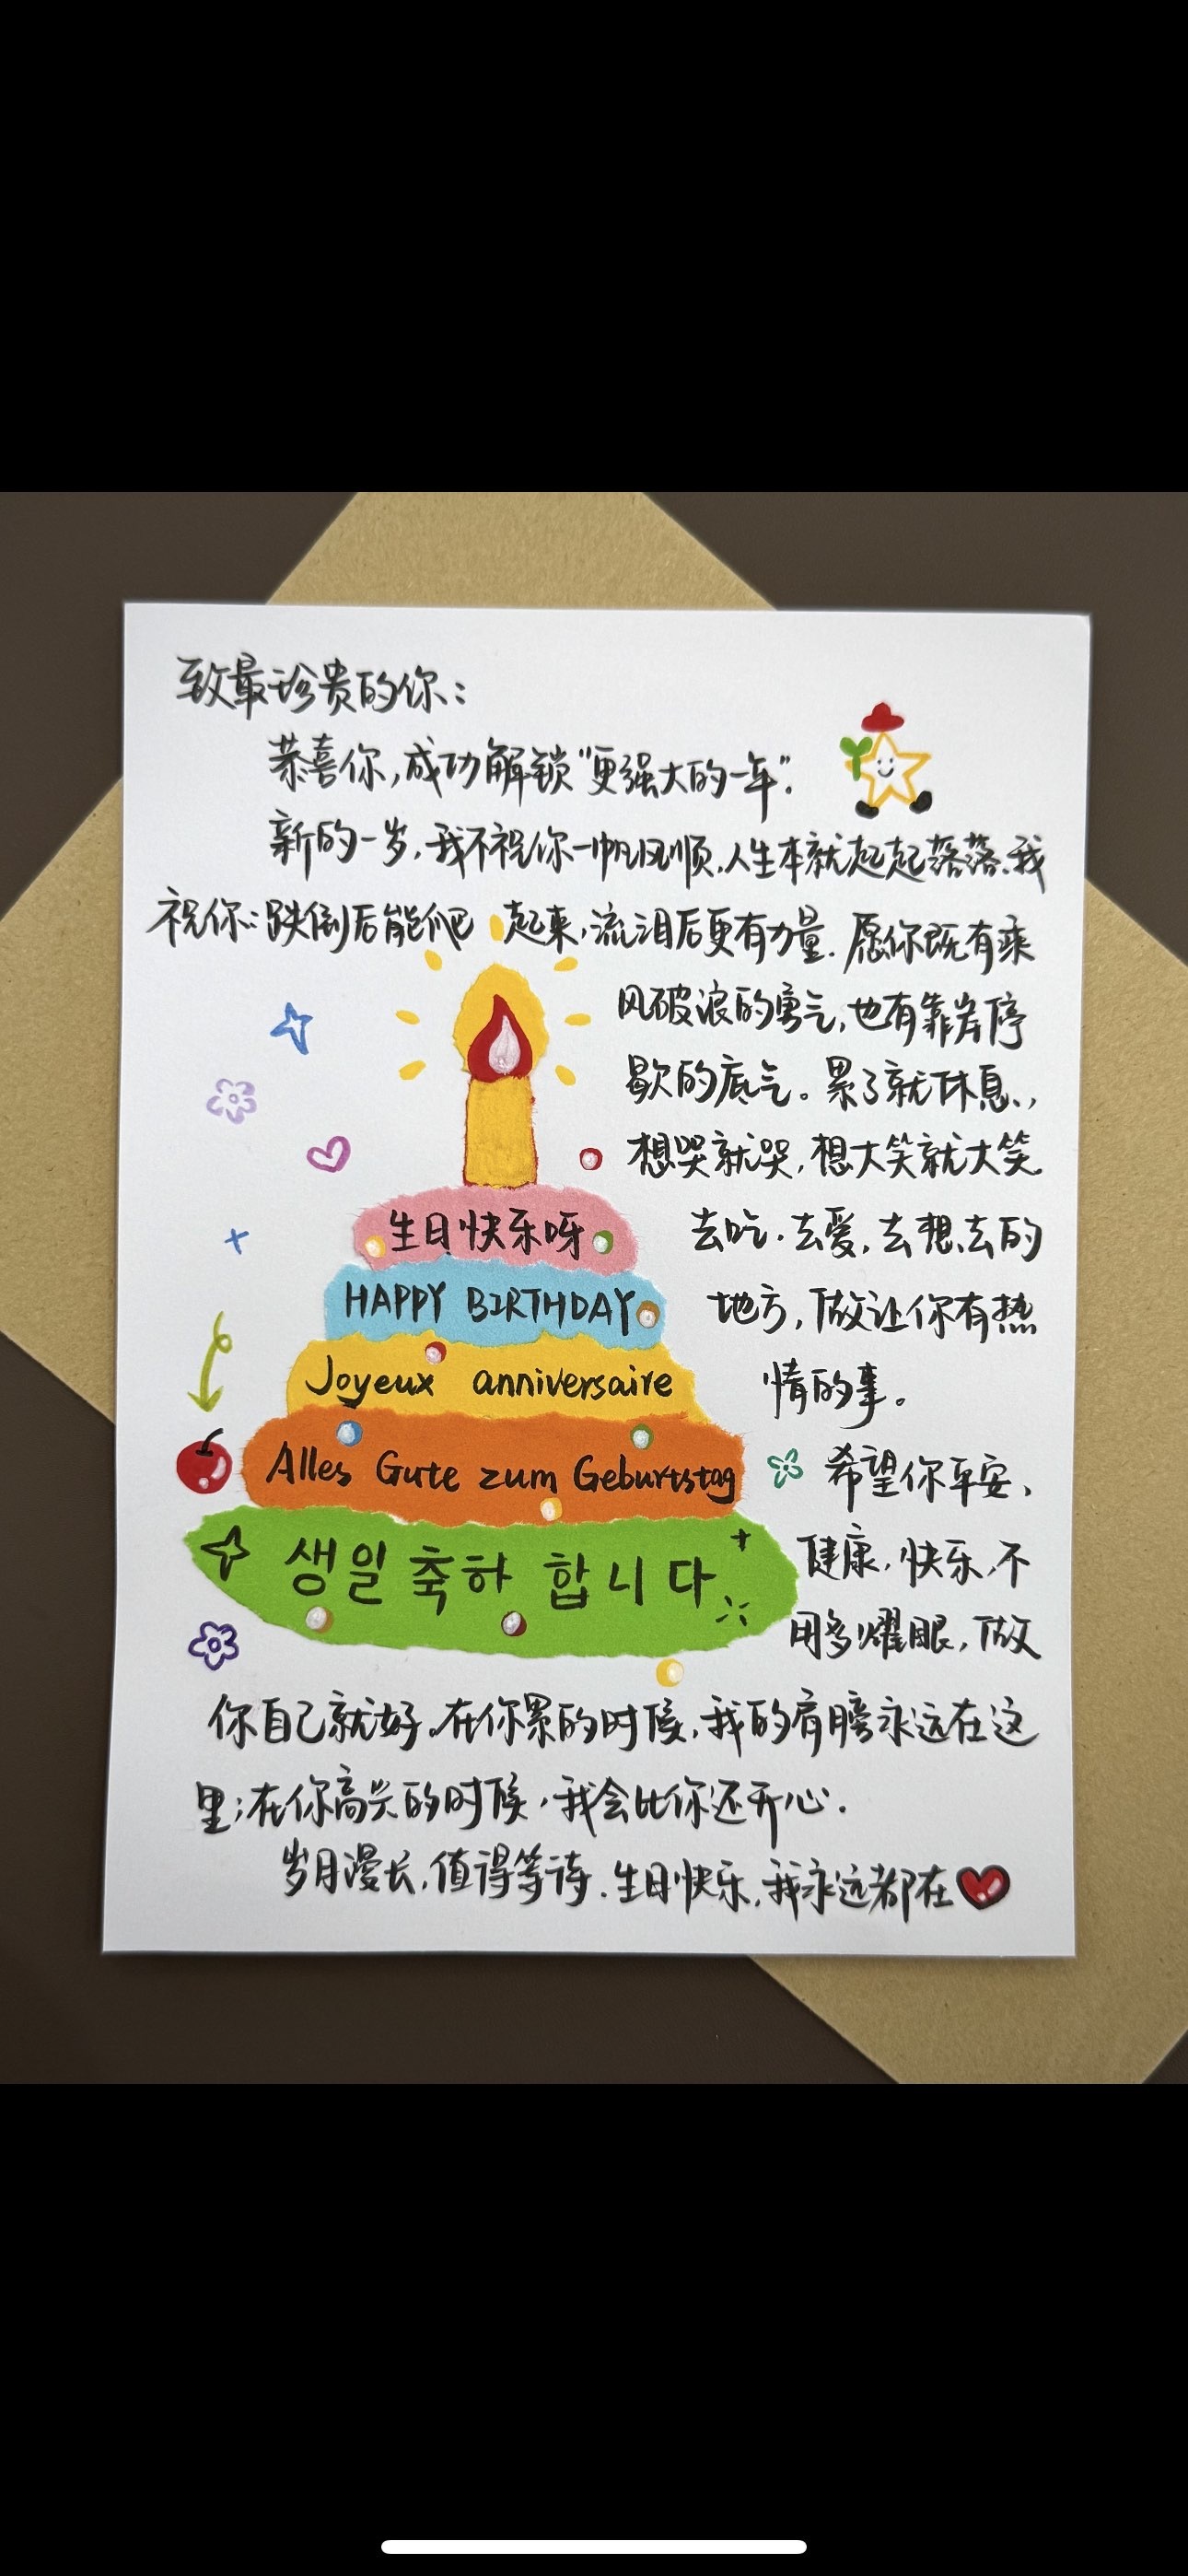 致最珍贵的你：
恭喜你，成功解锁“更强大的一年”.
新的一岁，我不祝你一帆风顺，人生本就起起落落，我
祝你：跌倒后能爬起来，流泪后更有力量. 愿你既有乘
风破浪的勇气，也有靠岸停
歇的底气。累了就休息，
想哭就哭，想大笑就大笑
去吃.去爱，去想去的
地方，做让你有热
情的事。
希望你平安，
健康，快乐，不
用多耀眼，做
你自己就好。在你累的时候，我的肩膀永远在这
里；在你高兴的时候，我会比你还开心.
岁月漫长，值得等待.生日快乐，我永远都在
生日快乐呀
HAPPY BIRTHDAY
Joyeux anniversaire
Alles Gute zum Geburtstag
생일 축하 합니다